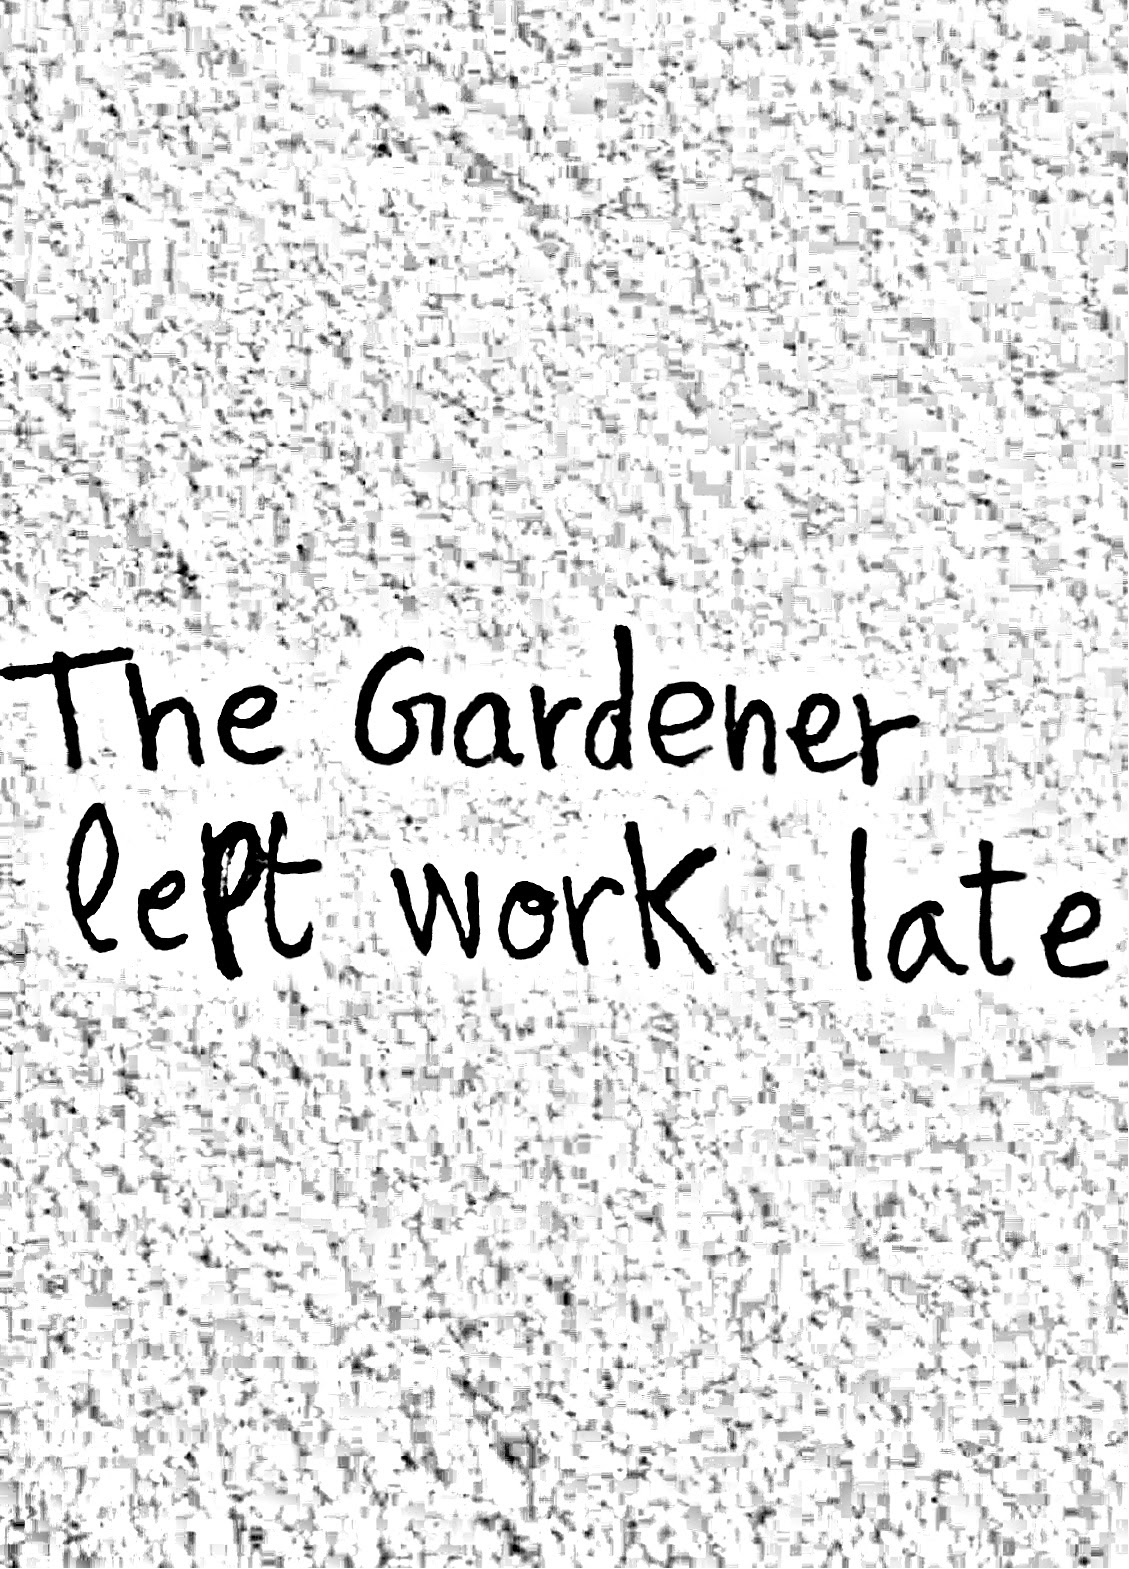 The Gardener
lept work late